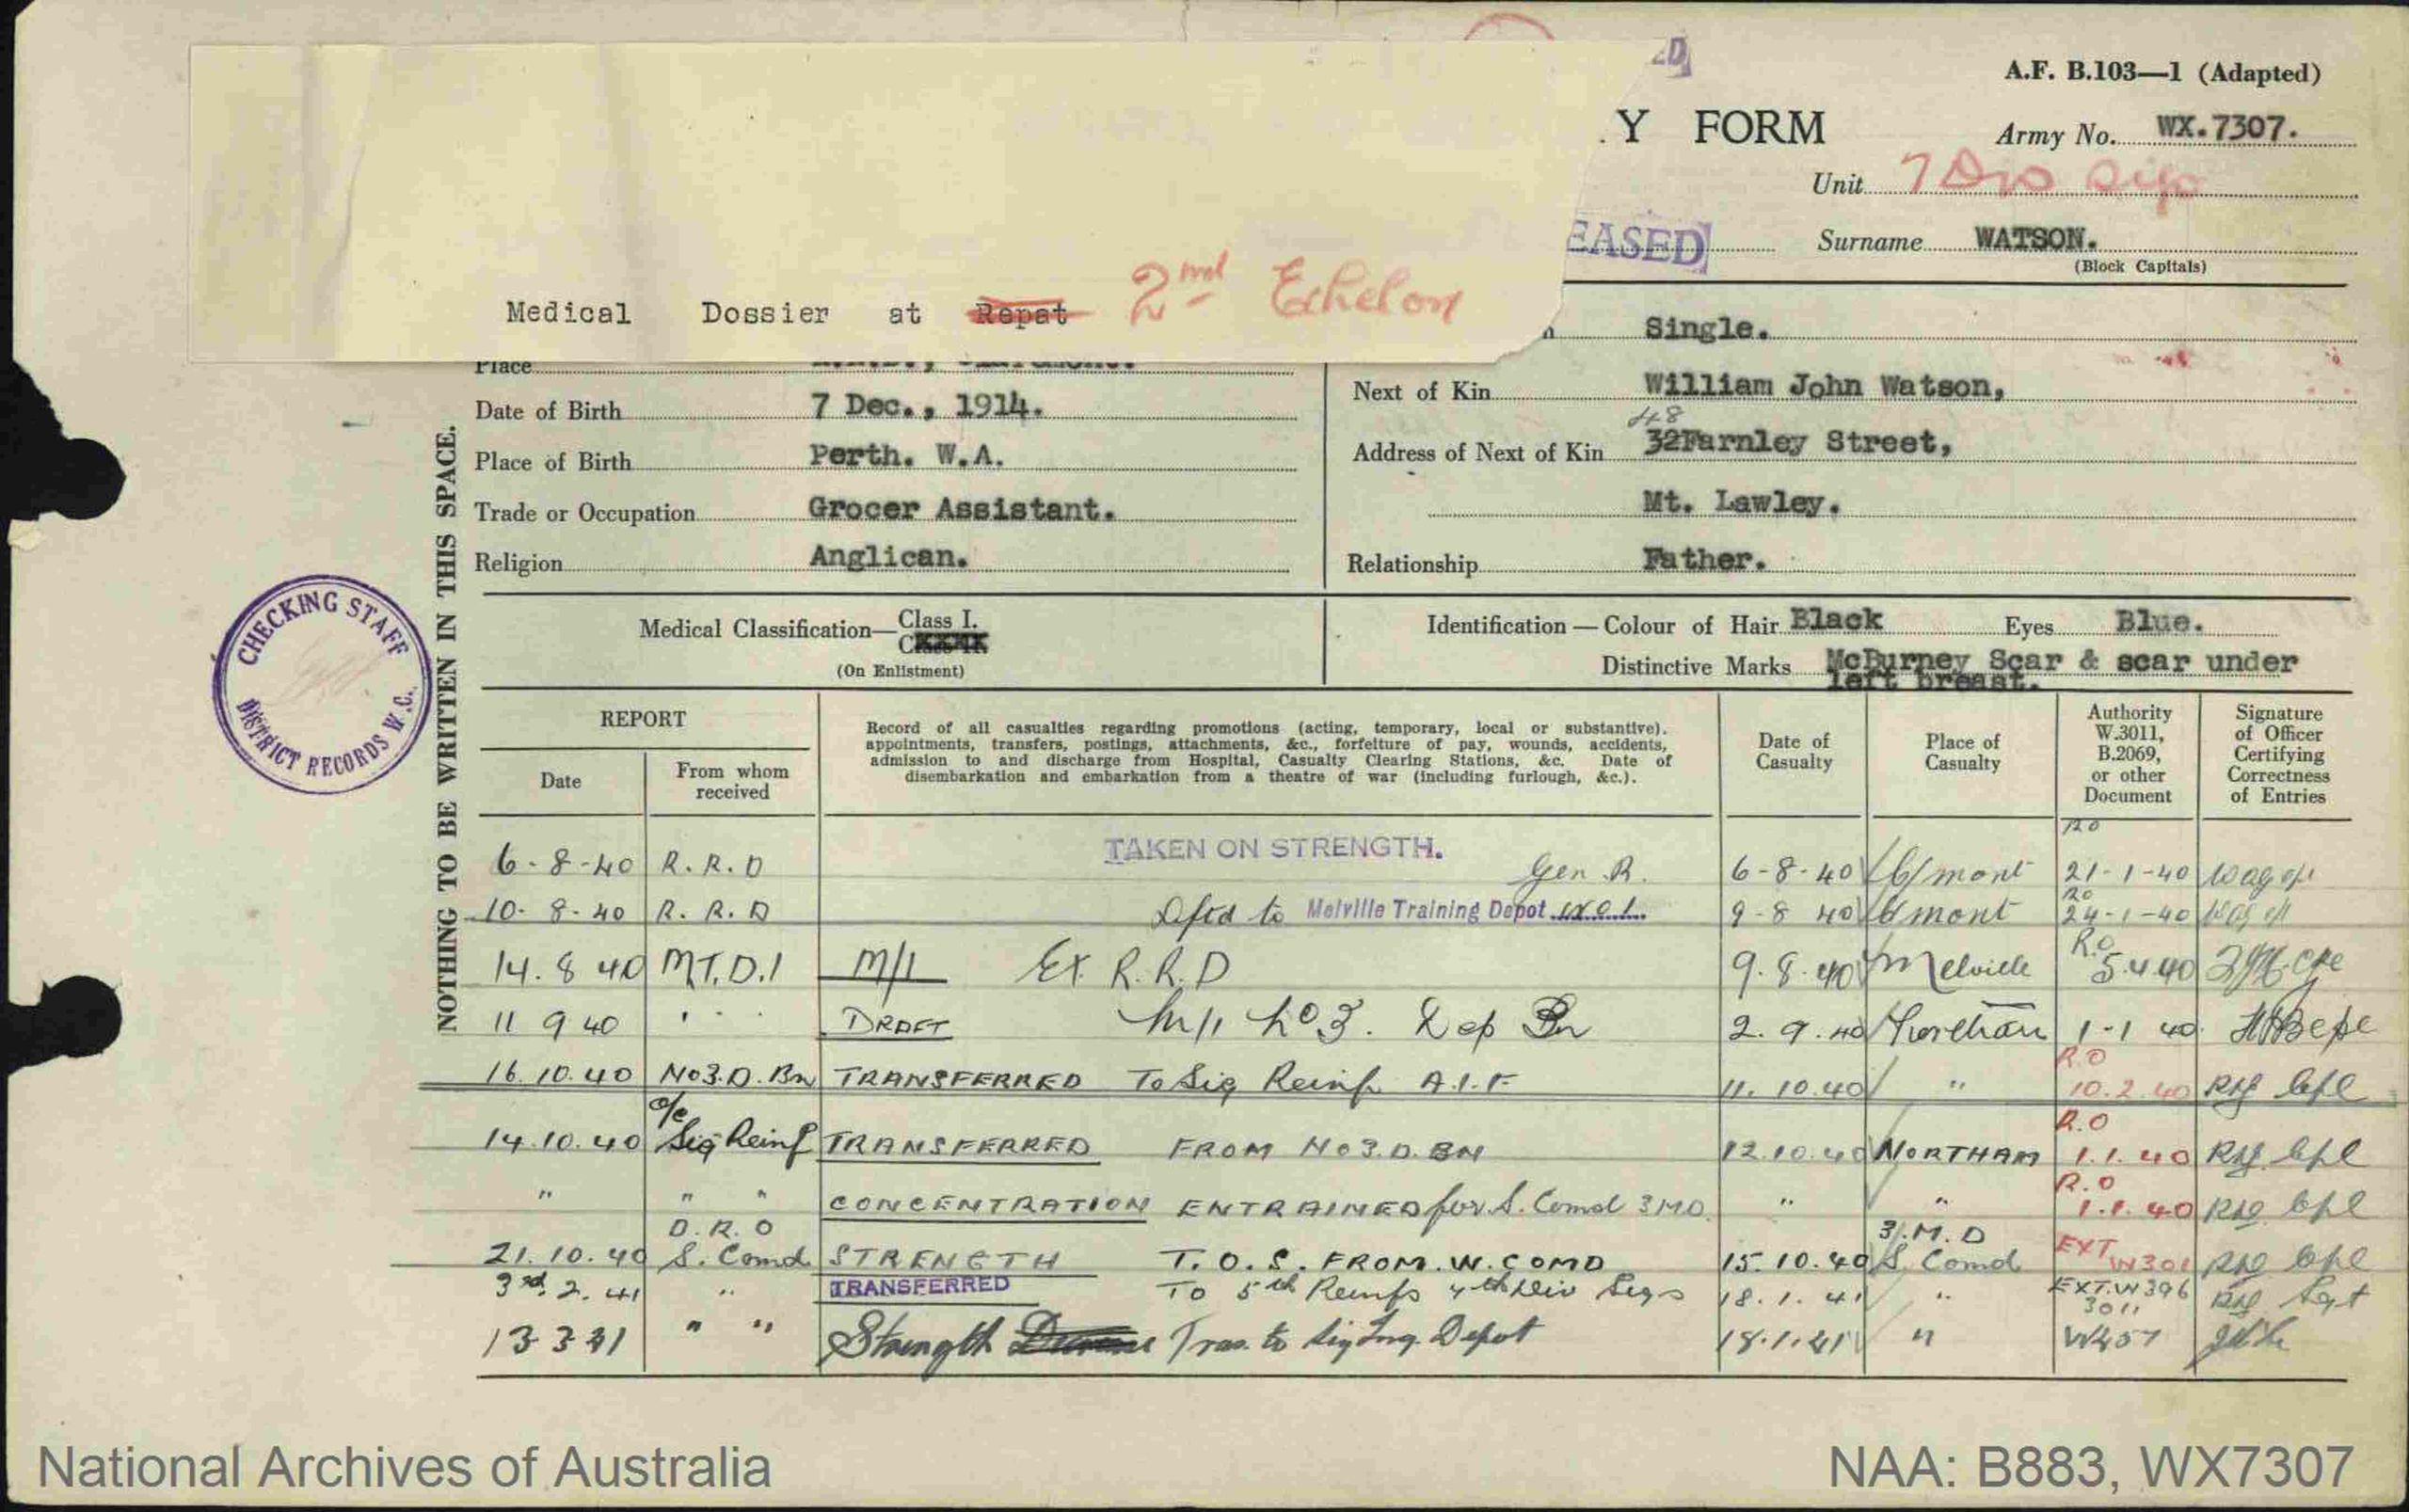 A.F. B.103—1 (Adapted)
Y FORM
Army No. WX.7307.
Unit 7 Div Sigs
EASED
Surname WATSON.
(Block Capitals)
Medical Dossier at Repat 2nd Echelon
Single.
Place
Next of Kin William John Watson,
Date of Birth 7 Dec., 1914.
48
Address of Next of Kin 32 Farnley Street,
Place of Birth Perth. W.A.
Mt. Lawley.
Trade or Occupation Grocer Assistant.
Religion Anglican.
Relationship Father.
NOTHING TO BE WRITTEN IN THIS SPACE.
CHECKING STAFF
DISTRICT RECORDS W.C.
Medical Classification— Class I.
(On Enlistment)
Identification — Colour of Hair Black Eyes Blue.
Distinctive Marks McBurney Scar & scar under
left breast.
REPORT
Date
From whom received
Record of all casualties regarding promotions (acting, temporary, local or substantive).
appointments, transfers, postings, attachments, &c., forfeiture of pay, wounds, accidents,
admission to and discharge from Hospital, Casualty Clearing Stations, &c. Date of
disembarkation and embarkation from a theatre of war (including furlough, &c.).
Date of Casualty
Place of Casualty
Authority W.3011, B.2069, or other Document
Signature of Officer Certifying Correctness of Entries
6-8-40 R.R.D TAKEN ON STRENGTH. Gen R. 6-8-40 C/mont RO 21-1-40
10-8-40 R.R.D to Melville Training Depot No 1. 9-8 40 C/mont RO 24-1-40
14.8 40 M.T.D.1 M/I Ex R.R.D 9.8.40 Melville R.O 5.4 40
11 9 40 " " DRAFT M/I No 3. Dep Bn 2.9.40 Northam 1-1 40
16.10.40 No3.D.Bn TRANSFERRED To Sig Reinf A.I.F 11.10.40 " R.O 10.2.40 Cpl
14.10.40 o/c Sig Reinf TRANSFERRED FROM No3.D.BN 12.10.40 NORTHAM R.O 1.1.40 Cpl
" " " CONCENTRATION ENTRAINED for S. Comd 3 MD. " " R.O 1.1.40 Cpl
21.10.40 D.R.O S. Comd STRENGTH T.O.S. FROM. W. COMD 15.10.40 3/M.D S. Comd EXT W301 Cpl
3rd. 2. 41 " TRANSFERRED To 5th Reinfs 7th Div Sigs 18.1.41 " EXT.W396 3011 Sgt
13 3 41 " " Strength Tras. to Sig Tng. Depot 18.1.41 " W457
National Archives of Australia
NAA: B883, WX7307